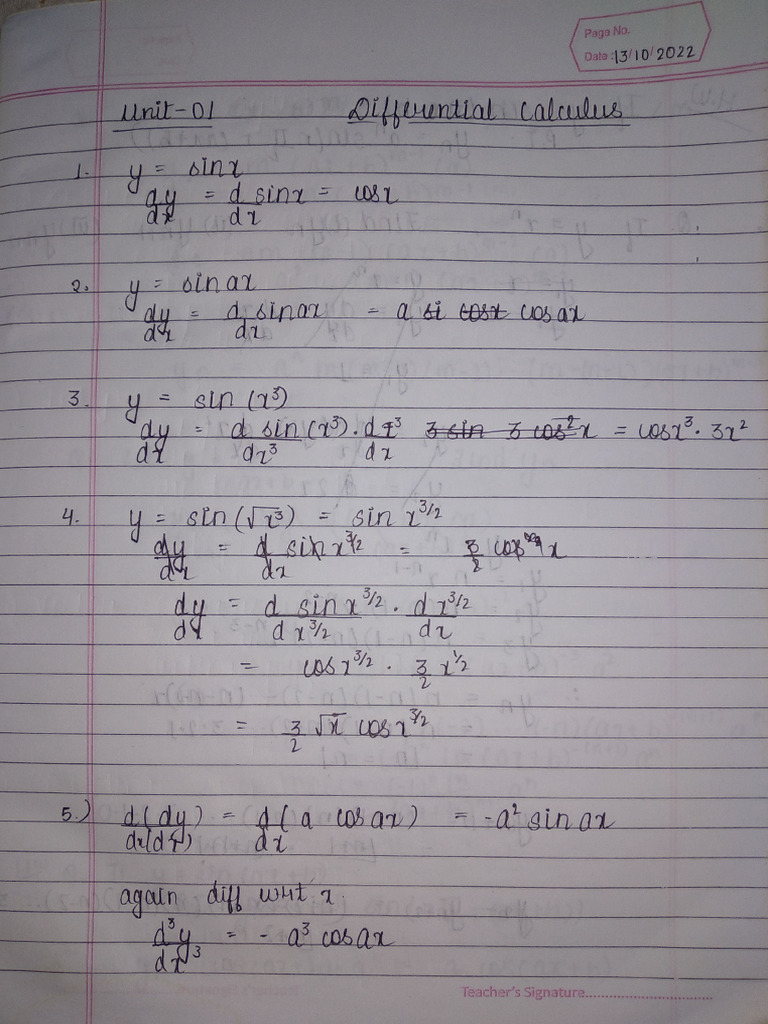 Page No.
Date : 13/10/2022
Unit-01 Differential Calculus
1. y = sinx
dy/dx = d/dx sinx = cosx
2. y = sinax
dy/dx = d/dx sinax = a si cosx cosax
3. y = sin (x³)
dy/dx = d sin(x³)/dx³ · dx³/dx 3 sin 3 cos²x = cosx³ · 3x²
4. y = sin(√x³) = sin x^3/2
dy/dx = d/dx sin x^3/2 = 3/2 cos x
dy/dx = d sinx^3/2 / dx^3/2 · dx^3/2 / dx
= cosx^3/2 · 3/2 x^1/2
= 3/2 √x cosx^3/2
5.) d/dx (dy/dx) = d/dx (a cosax) = -a² sinax
again diff wrt x
d³y/dx³ = - a³ cosax
Teacher's Signature